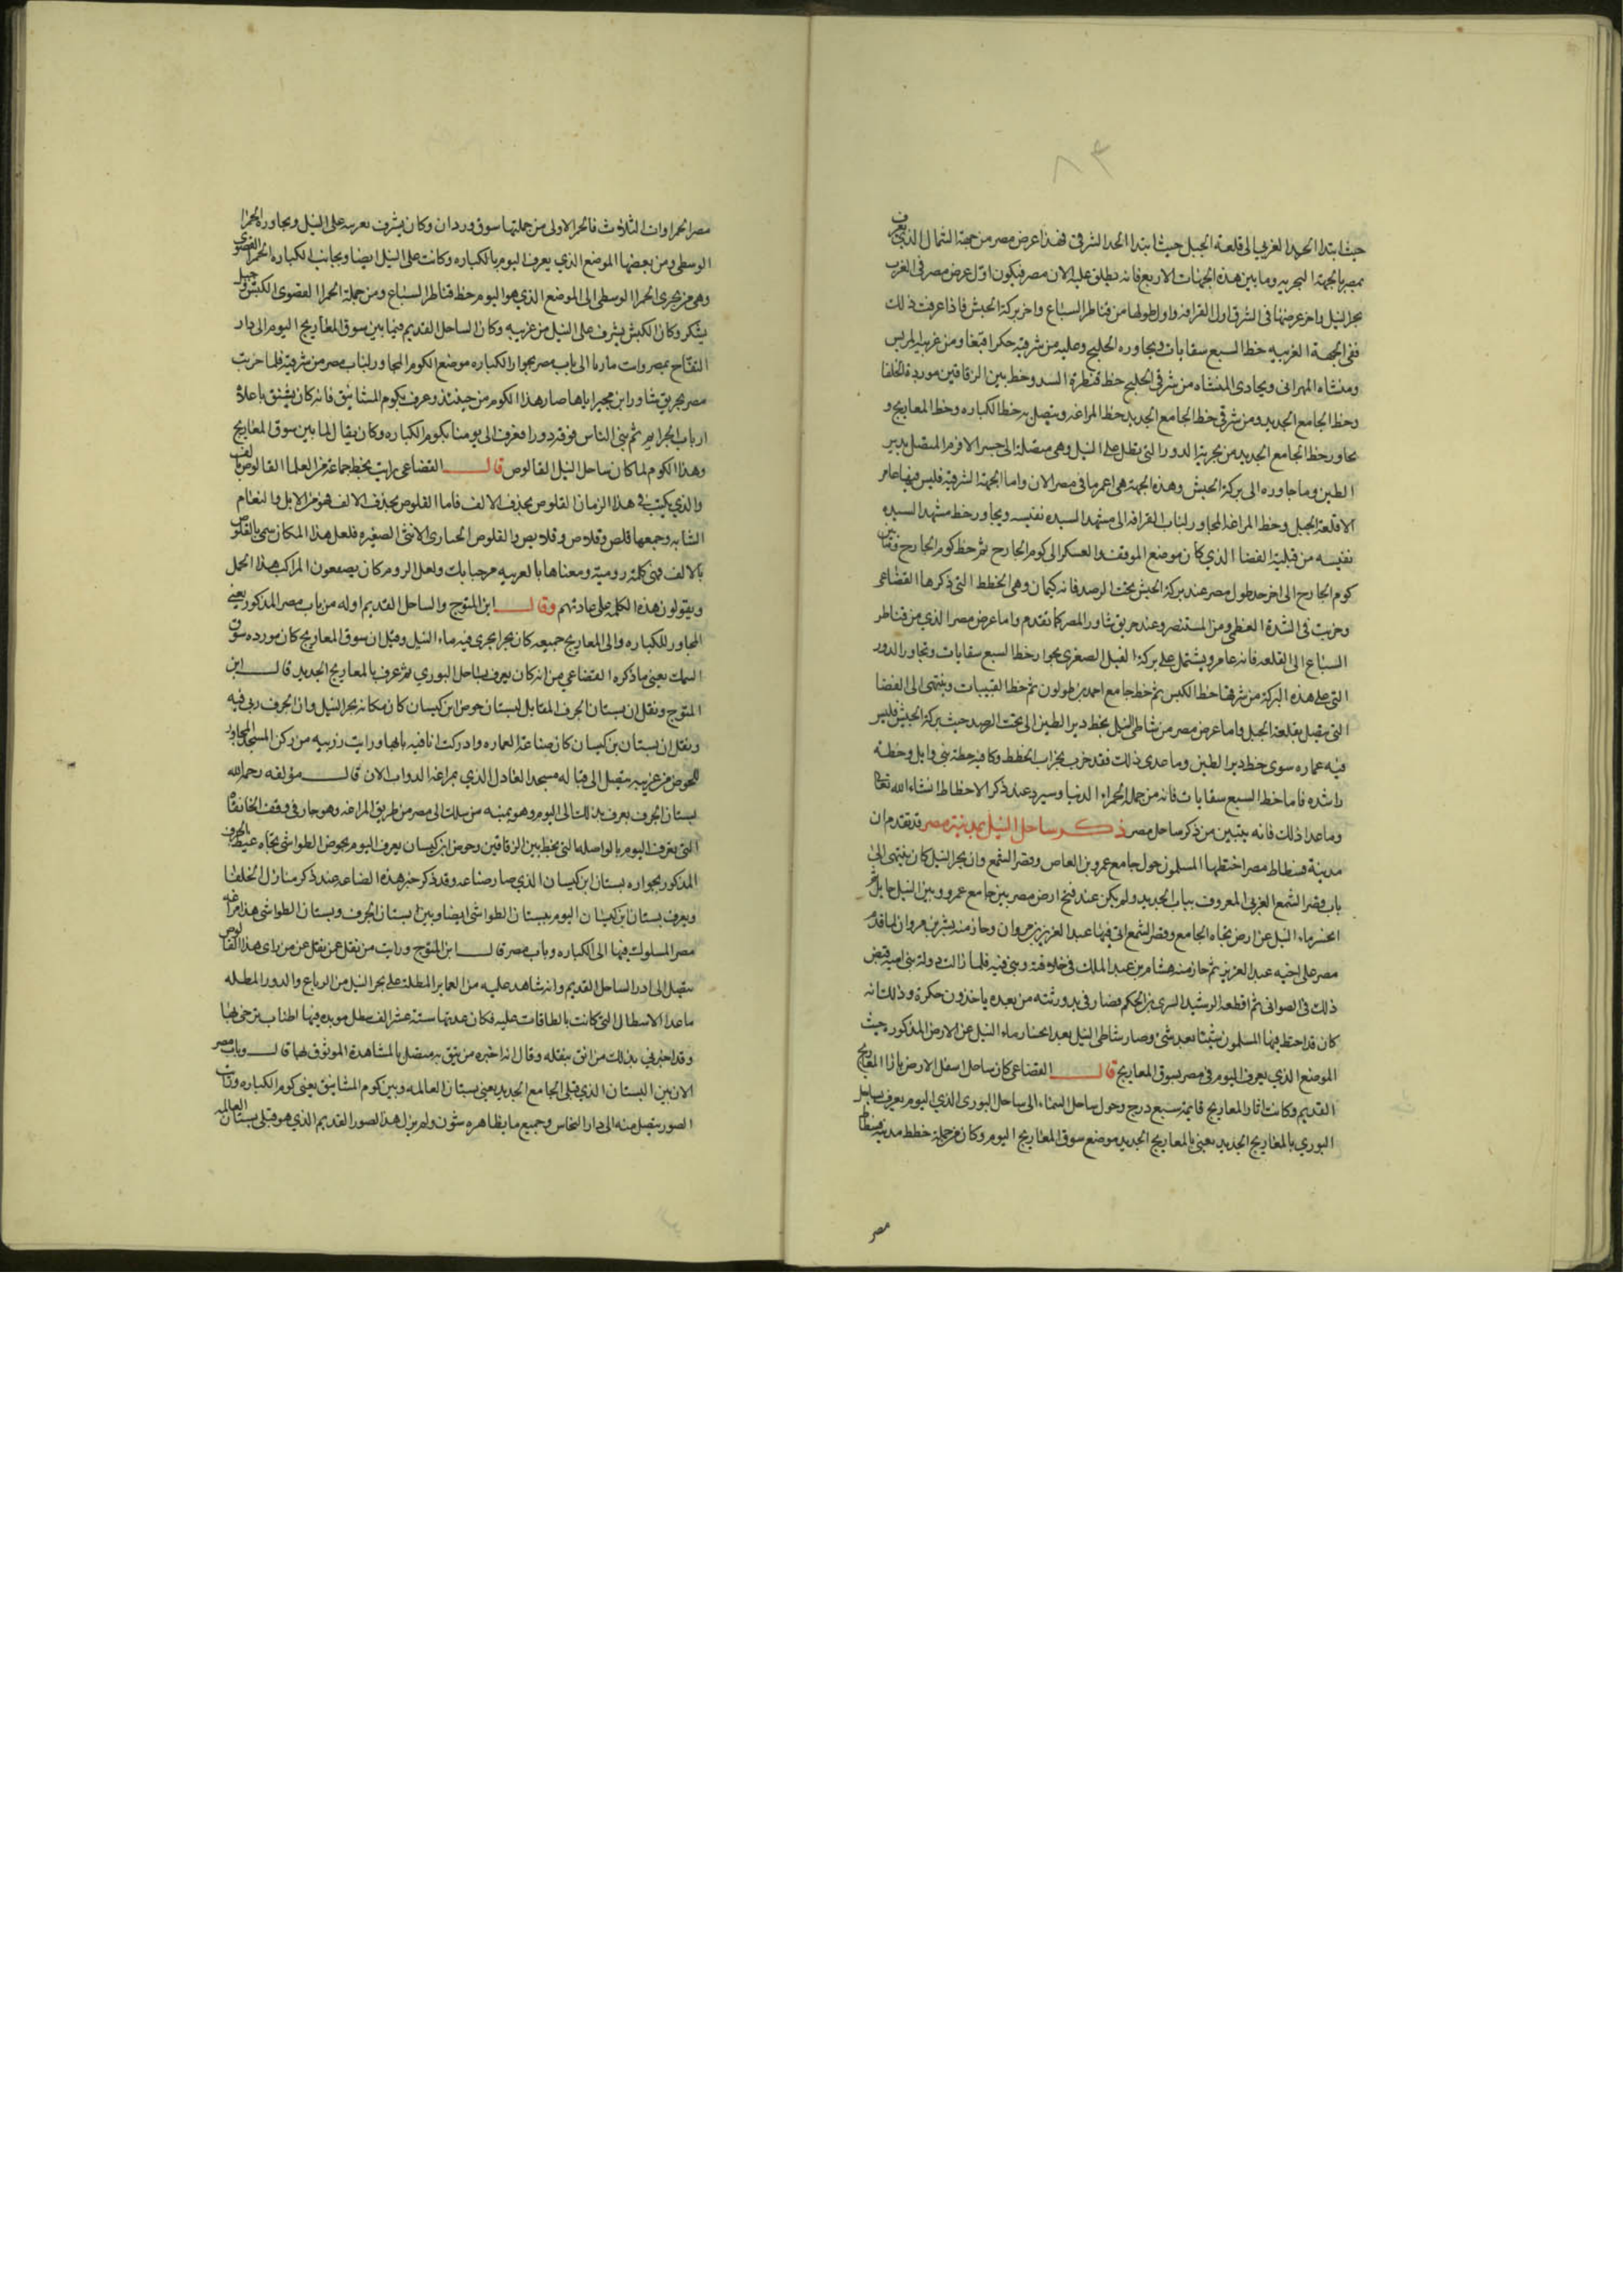 ٨٣
حيث ابتدا الحد الغربي الى قلعة الجبل حيث ابتدا الحد الشرقي فهذا عرض مصر من جهة الشمال الذي يعرف
بمصر بالجهة البحريه وما بين هذه الجهات الاربع فانه يطلق عليه الان مصر فيكون اول عرض مصر في الغرب
بحر النيل واخر عرضها في الشرق اول القرافه واول طولها من قناطر السباع واخر بركة الحبش فاذا عرفت ذلك
ففي الجهة الغربيه خط السبع سقايات ويجاوره الخليج وعليه من شرقيه حكر اقبغا ومن غربيه المريس
ومنشاه المهراني ويحادى المنشاه من شرقي الخليج خط قنطرة السد وخط بين الزقاقين وموردة الخلفا
وخط الجامع الجديد ومن شرقي خط الجامع الجديد خط المراغه ويتصل به خط الكباره وخط المعاريج و
يجاور خط الجامع الجديد من بحريه الدور التي تطل على النيل وهي متصلة الى جسر الافرم المتصل بدير
الطين وما جاوره الى بركة الحبش وهذه الجهة هي اعمر ما في مصر الان واما الجهة الشرقية فليس فيها عامر
الا قلعة الجبل وخط المراغه المجاور لباب القرافه الى مشهد السيده نفيسه ويجاور خط مشهد السيده
نفيسه من قبليه الفضا الذي كان موضع الموقف والعسكر الى كوم الجارح ثم خط كوم الجارح وما بين
كوم الجارح الى اخر حد طول مصر عند بركة الحبش تحت الرصد فانه كيمان وهي الخطط التي ذكرها القضاعى
وخربت في الشدة العظمى زمن المستنصر وعند حريق شاور المصر كما تقدم واما عرض مصر الذي من قناطر
السباع الى القلعه فانه عامر ويشتمل على بركة الفيل الصغرى بجوار خط السبع سقايات وتجاور الدور
التي على هذه البركة من شرقها خط الكبس ثم خط جامع احمد بن طولون ثم خط القبيبات وينتهى الى الفضا
الذي يتصل بقلعة الجبل واما عرض مصر من شاطى النيل بخط دير الطين الى تحت الرصد حيث بركة الحبش فليس
فيه عماره سوى خط دير الطين وما عدى ذلك فقد خرب بخراب الخطط وكان فيه خطة بني وايل وخطة
راشده فاما خط السبع سقايات فانه من جملة الحمراء الدنيا وسيرد عند ذكر الاخطاط انشاء الله تعالى
وما عدا ذلك فانه يتبين من ذكر ساحل مصر ذكر ساحل النيل بمدينة مصر قد تقدم ان
مدينة فسطاط مصر اختطها المسلمون حول جامع عمرو بن العاص وقصر الشمع وان بحر النيل كان ينتهى الى
باب قصر الشمع الغربى المعروف بباب الجديد ولم يكن عند فتح ارض مصر بين جامع عمرو وبين النيل حايل ثم
انحسر ماء النيل عن ارض تجاه الجامع وقصر الشمع ابتنى فيها عبد العزيز بن مروان وحاز منه بشر بن مروان لما قدم
مصر على اخيه عبد العزيز ثم حاز منه هشام بن عبد الملك في خلافته وبنى فيه فلما زالت دولة بنى اميه قبض
ذلك فى الصوافى ثم اقطعه الرشيد السرى بن الحكم فصار في يد ورثته من بعده ياخذون حكرة وذلك انه
كان قد اختط فيها المسلمون شيئا بعد شئ وصار شاطى النيل بعد انحسار ماء النيل عن الارض المذكوره حيث
الموضع الذي يعرف اليوم في مصر بسوق المعاريج قال القضاعى كان ساحل اسفل الارض بازا المعاريج
القديم وكانت اثار المعاريج قايمة سبع درج وحول ساحل السماء الى ساحل البورى الذي اليوم يعرف بساحل
البوري بالمعاريج الجديد يعنى بالمعاريج الجديد موضع سوق المعاريج اليوم وكان من جملة خطط مدينة فسطاط
مصر
مصر الحمراوات الثلاث فالحمرا الاولى من جملتها سوق وردان وكان يشرف بغربيه على النيل ويجاوره الحمرا
الوسطى ومن بعضها الموضع الذي يعرف اليوم بالكباره وكانت على النيل ايضا وبجانب الكباره الحمرا القصوى
وهى من بحرى الحمرا الوسطى الى الموضع الذي هو اليوم خط قناطر السباع ومن جملة الحمرا القصوى الكبش وجبل
يشكر وكان الكبش يشرف على النيل من غربيه وكان الساحل القديم فيما بين سوق المعاريج اليوم الى دار
التفاح بمصر وانت مار الى باب مصر بجوار الكباره وموضع الكوم المجاور لباب مصر من شرقيه فلما خربت
مصر بحريق شاور ابن مجير اياها صار هذا الكوم من حينئذ وعرف بكوم المشانيق فانه كان يشنق باعلاه
ارباب الجرايم ثم بنى الناس فوقه دورا فعرف الى يومنا بكوم الكباره وكان يقال لما بين سوق المعاريج
وهذا الكوم لما كان ساحل النيل القالوص قال القضاعى رايت بخط جماعة من العلما القالوص بالف
والذي يكتب في هذا الزمان القلوص بحذف الالف فاما القلوص بحذف الالف فهو من الابل والنعام
الشابه وجمعها قلص وقلاص وقلايص والقلوص الحبارى الانثى الصغيره فلعل هذا المكان سمى بالقلوص
بالالف فهى كلمة روميه ومعناها بالعربيه مرحبا بك ولعل الروم كان يصفعون المراكب هذا الجمل
ويقولون هذه الكلمه على عادتهم وقال ابن المتوج والساحل القديم اوله من باب مصر المذكور يعنى
المجاور للكباره والى المعاريج جميعه كان بحرا يجرى فيه ماء النيل وقيل ان سوق المعاريج كان مورده سوق
السمك يعنى ما ذكره القضاعي من انه كان يعرف بساحل البوري ثم عرف بالمعاريج الجديد قال ابن
المتوج ونقل ان بستان الجرف المقابل لبستان حوض ابن كيسان كان مكانه بحر النيل وان الجرف ربى فيه
ونقل ان بستان بن كيسان كان صناعة العماره وادركت انا فيه بابها ورايت زربيه من ركن المسجد المجاور
للحوض من غربيه يتصل الى قباله مسجد العادل الذي بمراغة الدواب الان قال مؤلفه رحمه الله
بستان الجرف يعرف بذلك الى اليوم وهو يمينه من سلك الى مصر من طريق المراغه وهو جار في وقف الخانقاه
التى يعرف اليوم بالواصله التى بخط بين الزقاقين وحوض ابن كيسان يعرف اليوم بحوض الطواشى تجاه غيط الجرف
المذكور بجواره بستان ابن كيسان الذي صار صناعه وقد ذكر خبر هذه الصناعه عند ذكر منازل الخلفا
ويعرف بستان ابن كيسان اليوم ببستان الطواشى ايضا وبين بستان الجرف وبستان الطواشى هذا مراغه
مصر المسلوك فيها الى الكباره وباب مصر قال ابن المتوج ورايت من نقل عن نقل عن من راى هذا القالوص
يتصل الى ادر الساحل القديم وانه شاهد عليه من العماير المطلة على بحر النيل من الرباع والدور المطله
ما عدا الاسطال التى كانت بالطاقات عليه فكان عدتها ستة عشر الف سطل مويده فيها اطناب ترخى بها
وقد اخبرني بذلك من اثق بنقله وقال انه اخبره من يثق به متصل بالمشاهدة الموثوق بها قال وباب مصر
الان بين البستان الذي قبلى الجامع الجديد يعنى بستان العالمه وبين كوم المشانيق يعنى كوم الكباره ورايت
الصور يتصل منه الى دار النحاس وجميع ما بظاهره شون ولم يزل هذا الصور القديم الذي هو قبلى بستان العالمه